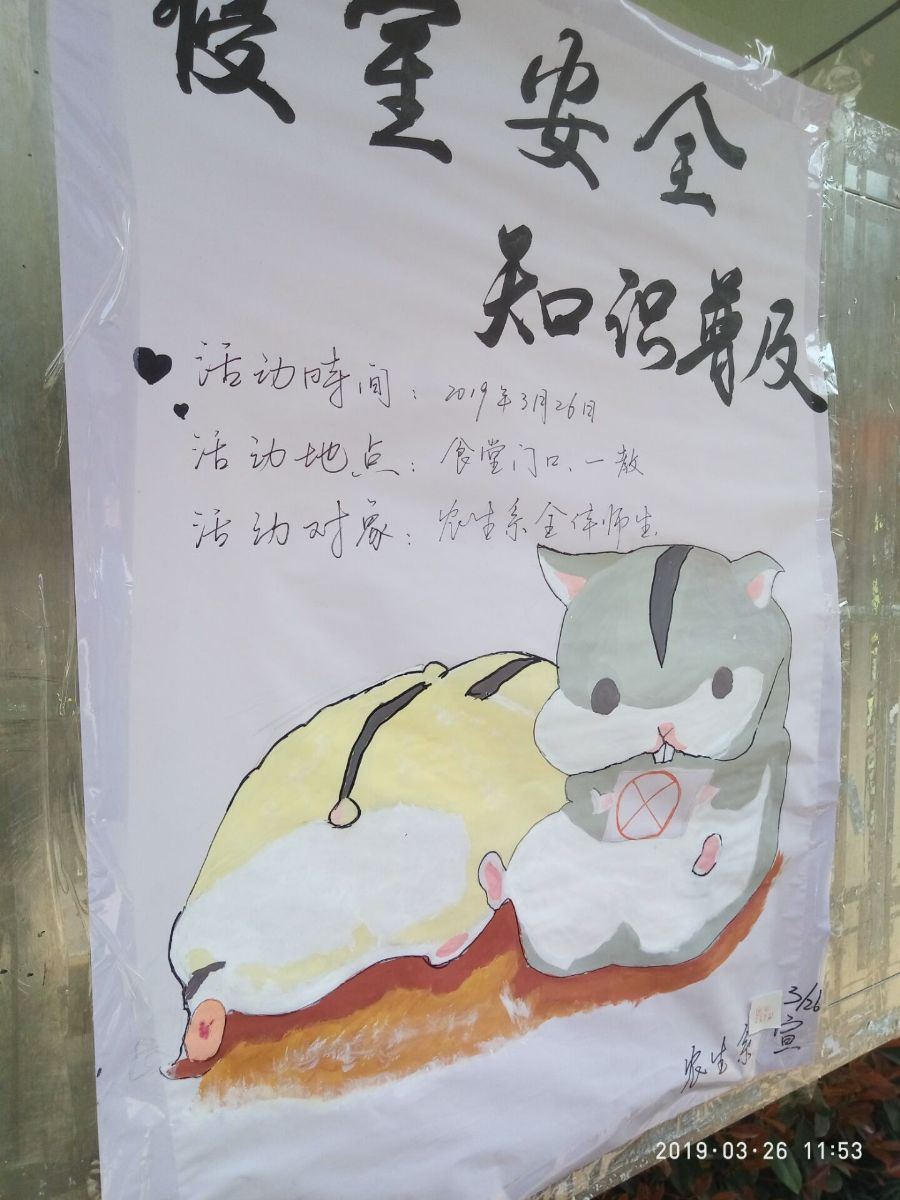 寝室安全
知识尊及
活动時间：2019年3月26日
活动地点：食堂门口、一教
活动对象：农生系全体师生.
农生系 宣
3/26
2019·03·26 11:53